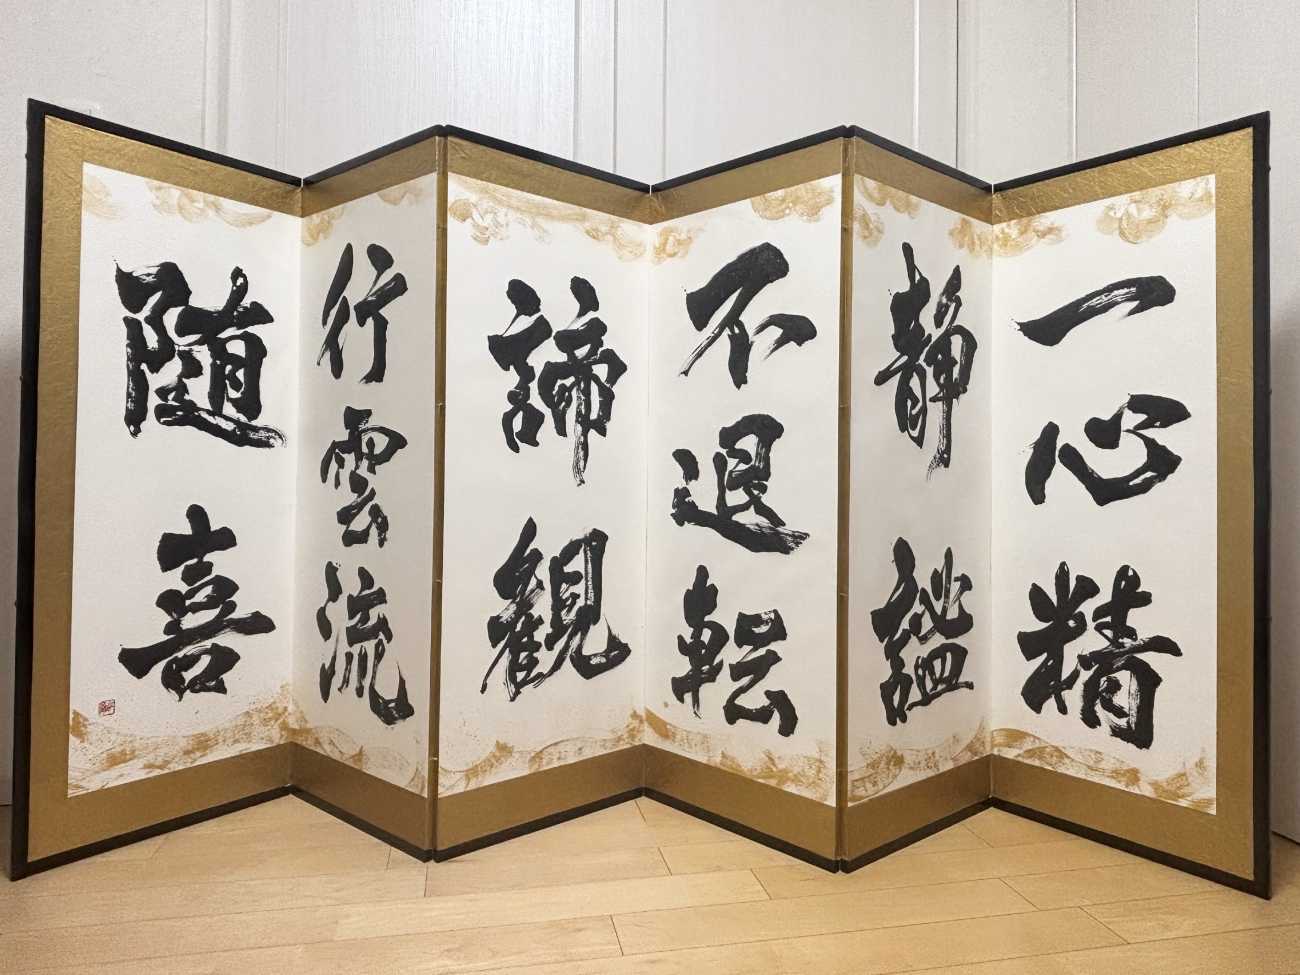 一心精
静謐
不退転
諦観
行雲流
随喜